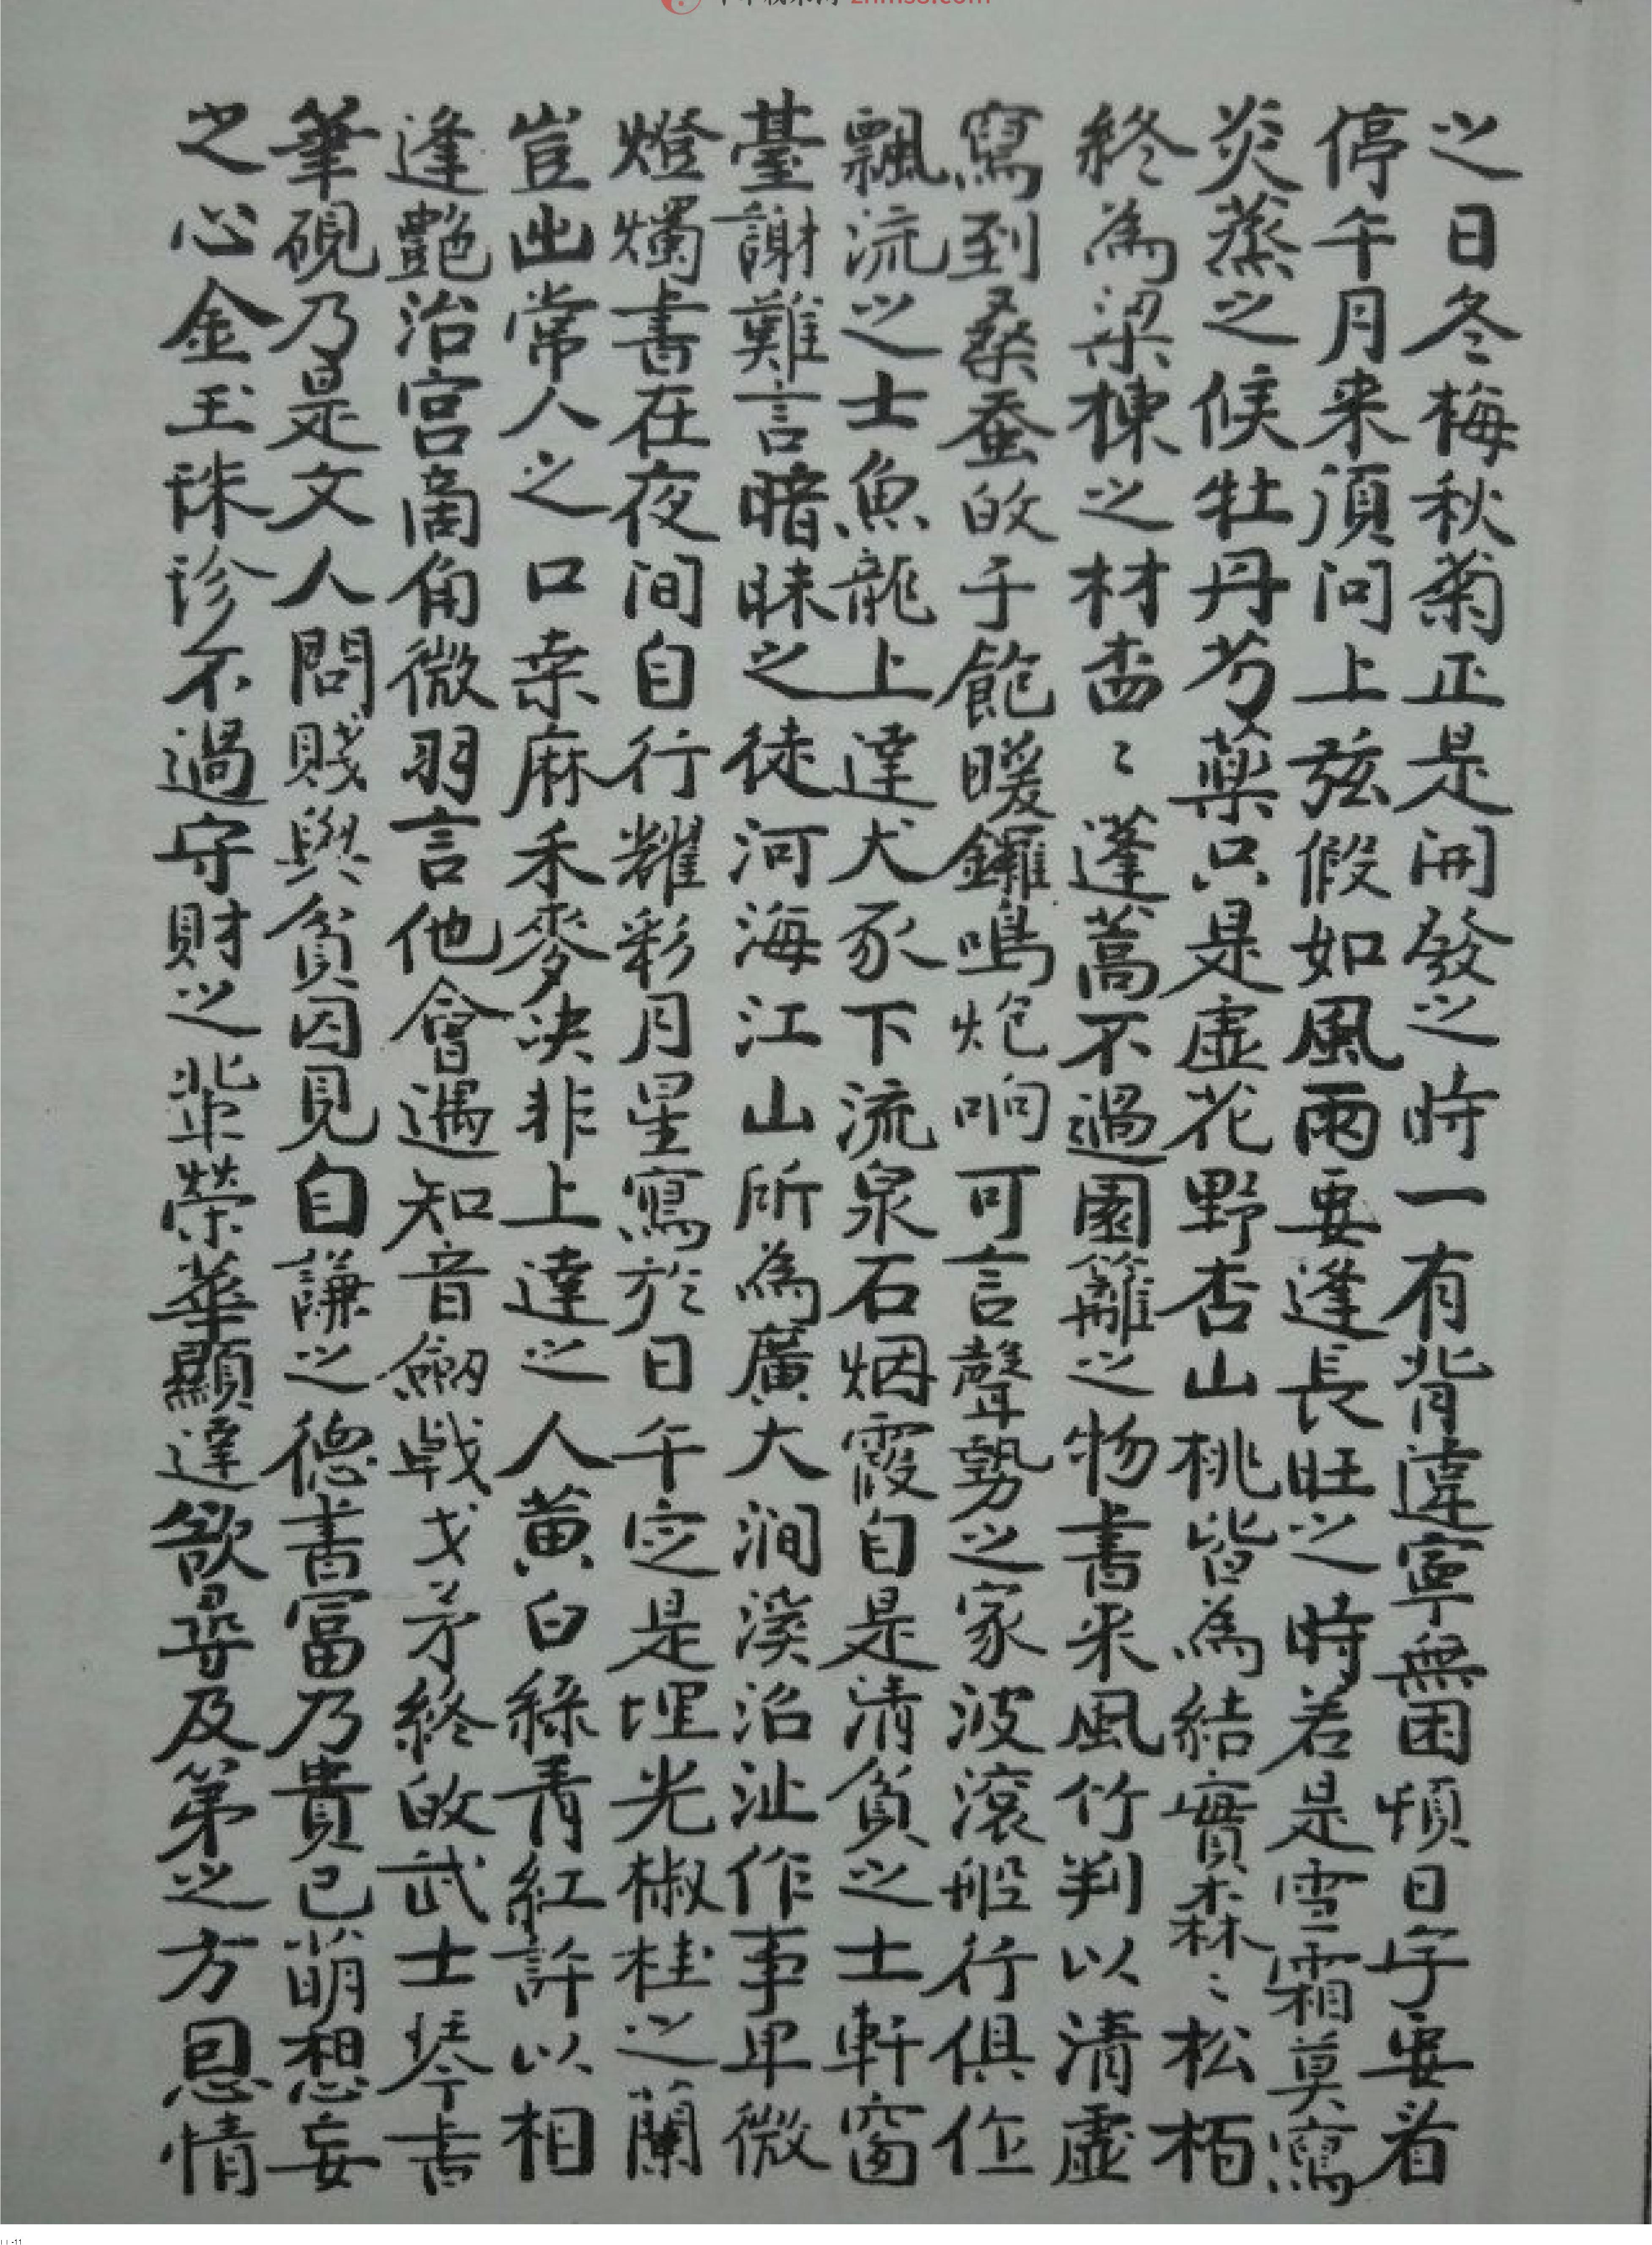 之日冬梅秋菊正是開發之時一有背違寧無困煩日字要看
停午月来須问上弦假如風雨要逢長旺之時若是雪霜莫寫
炎蒸之候牡丹芍薬只是虚花野杏山桃皆為結實森森〻松栢
終為梁棟之材畨〻蓬蒿不過園籬之物書来風竹判以清虚
寫到桑蚕的于飽暖鑼鳴炮响可言聲勢之家波滚船行俱作
飄流之士魚龍上達犬豕下流泉石烟霞自是清貧之士軒窗
臺謝難言暗昧之徒河海江山所為廣大涧溪沼沚作事卑微
燈燭書在夜间自行耀彩月星寫於日午定是埋光椒桂之蘭
豈出常人之口桒麻禾麥决非上達之人黄白綠青紅許以相
逢艷治宫啇角微羽言他會遇知音劔戟戈矛終的武士琴書
筆硯乃是文人問賤與貧因見自謙之德書富乃貴已萌想妄
之心金玉珠珍不過守財之輩榮華顯達欲尋及第之方恩情